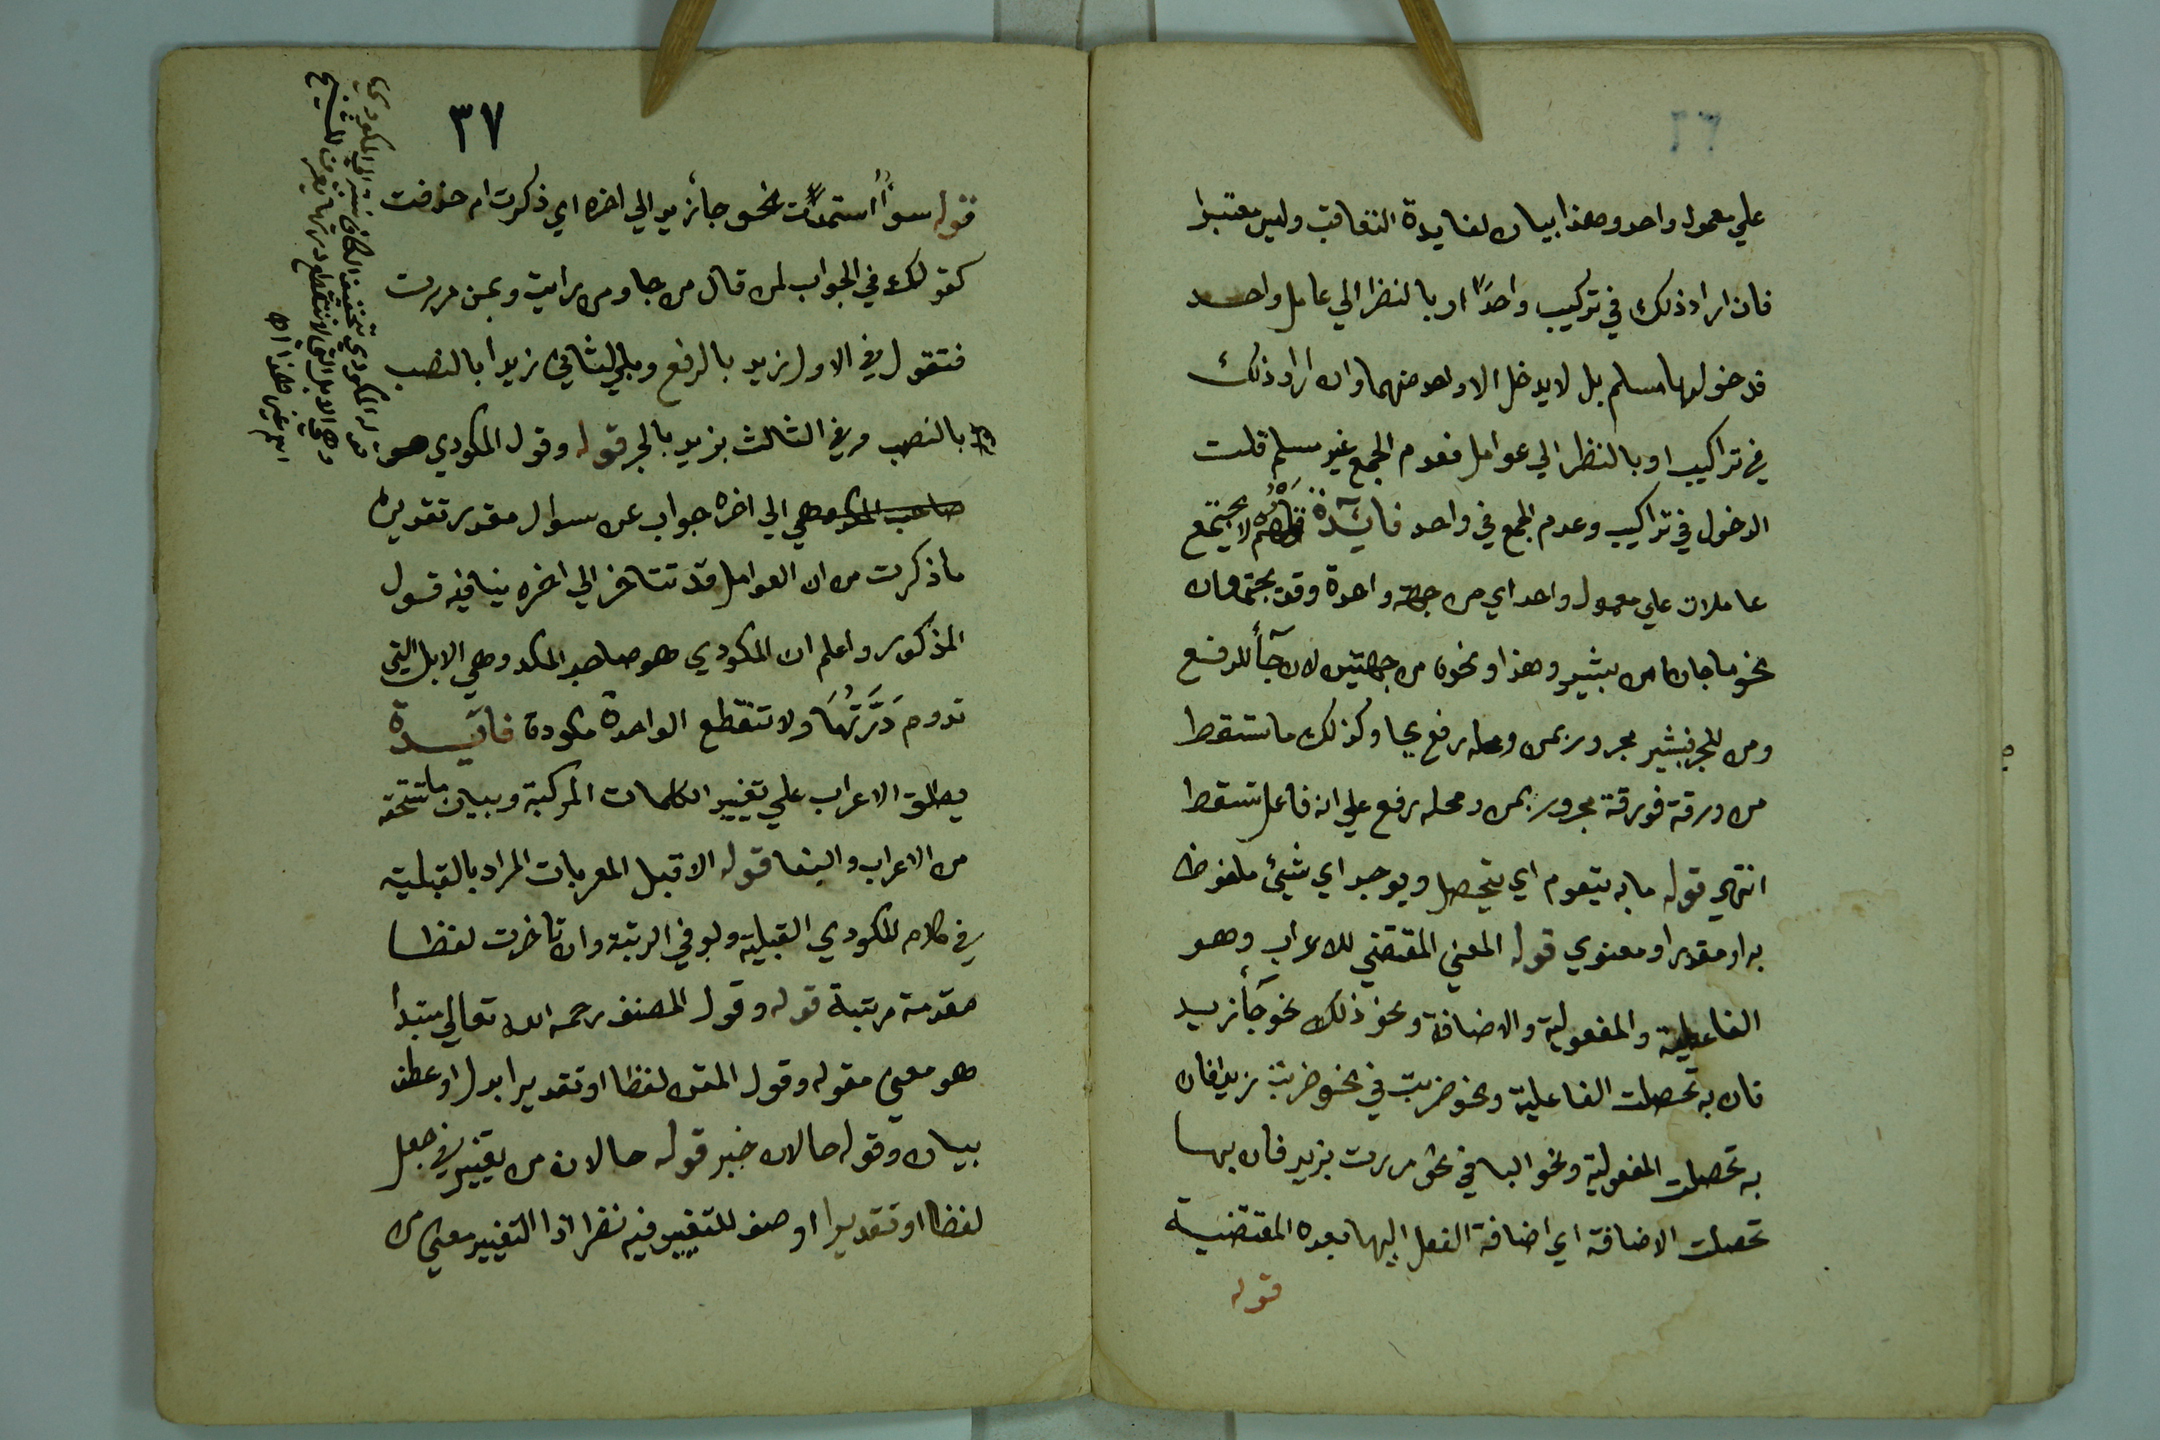 علي معمول واحد وهذا بيان لفايدة التعاقب وليس معتبرا
فان اراد ذلك في تركيب واحدًا او بالنظر الي عامل واحد
فدخولها مسلم بل لا يدخل الا واحد منهما وان اراد ذلك
في تراكيب او بالنظر الي عوامل فعدم الجمع غير مسلم قلت
الدخول في تراكيب وعدم الجمع في واحد فايدة قولهم لا يجتمع
عاملان علي معمول واحد اي من جهة واحدة وقد يجتمعان
نحو ما جانا من بشير وهذا ونحوه من جهتين لان جآ للرفع
ومن للجر فبشير مجرور بمن ومحله رفع بجا وكذلك ما تسقط
من ورقة فورقة مجرور بمن ومحله رفع علي انه فاعل تسقط
انتهي قوله ما به يتقوم اي يتحصل ويوجد اي شيئ ملفوظ
به او مقدر او معنوي قوله المعني المقتضي للاعراب وهو
الفاعلية والمفعولية والاضافة ونحو ذلك نحو جآ زيد
فان به تحصلت الفاعلية ونحو ضربت في نحو ضربت زيدا فان
به تحصلت المفعولية ونحو البا في نحو مررت بزيد فان بها
تحصلت الاضافة اي اضافة الفعل اليها بعده المقتضية
قوله
٣٧
قوله سوآ استمدت نحو جا زيد الي اخره اي ذكرت ام حذفت
كقولك في الجواب لمن قال من جا ومن رايت وبمن مررت
فتقول في الاول زيد بالرفع وفي الثاني زيدا بالنصب
بالنصب وفي الثالث بزيد بالجر قوله وقول المكودي هو
صاحب المكد وهي الي اخره جواب عن سوال مقدر تقديره
ما ذكرت من ان العوامل قد تتاخر الي اخره ينافيه قول
المذكور واعلم ان المكودي هو صاحب المكد وهي الابل التي
تدوم دَرَّتُهَا ولا تنقطع الواحدة مكودة فايدة
يطلق الاعراب علي تغيير الكلمات المركبة وبيان ما تستحقه
من الاعراب والبنا قوله الا قبل المعربات المراد بالقبلية
في كلام المكودي القبلية ولو في الرتبة وان تاخرت لفظا
مقدمة مرتبة قوله وقول المصنف رحمه الله تعالي مبتدا
هو معني مقوله وقول المتن لفظا او تقديرا بدل او عطف
بيان وقوله حالان خبر قوله حالان من تغيير في جعل
لفظا او تقديرا وصف للتغيير فيه نظر اذا التغيير معني من
المكودي بتخفيف الكاف نسبة الي المكود
وهي الابل التي لا تنقطع درتها